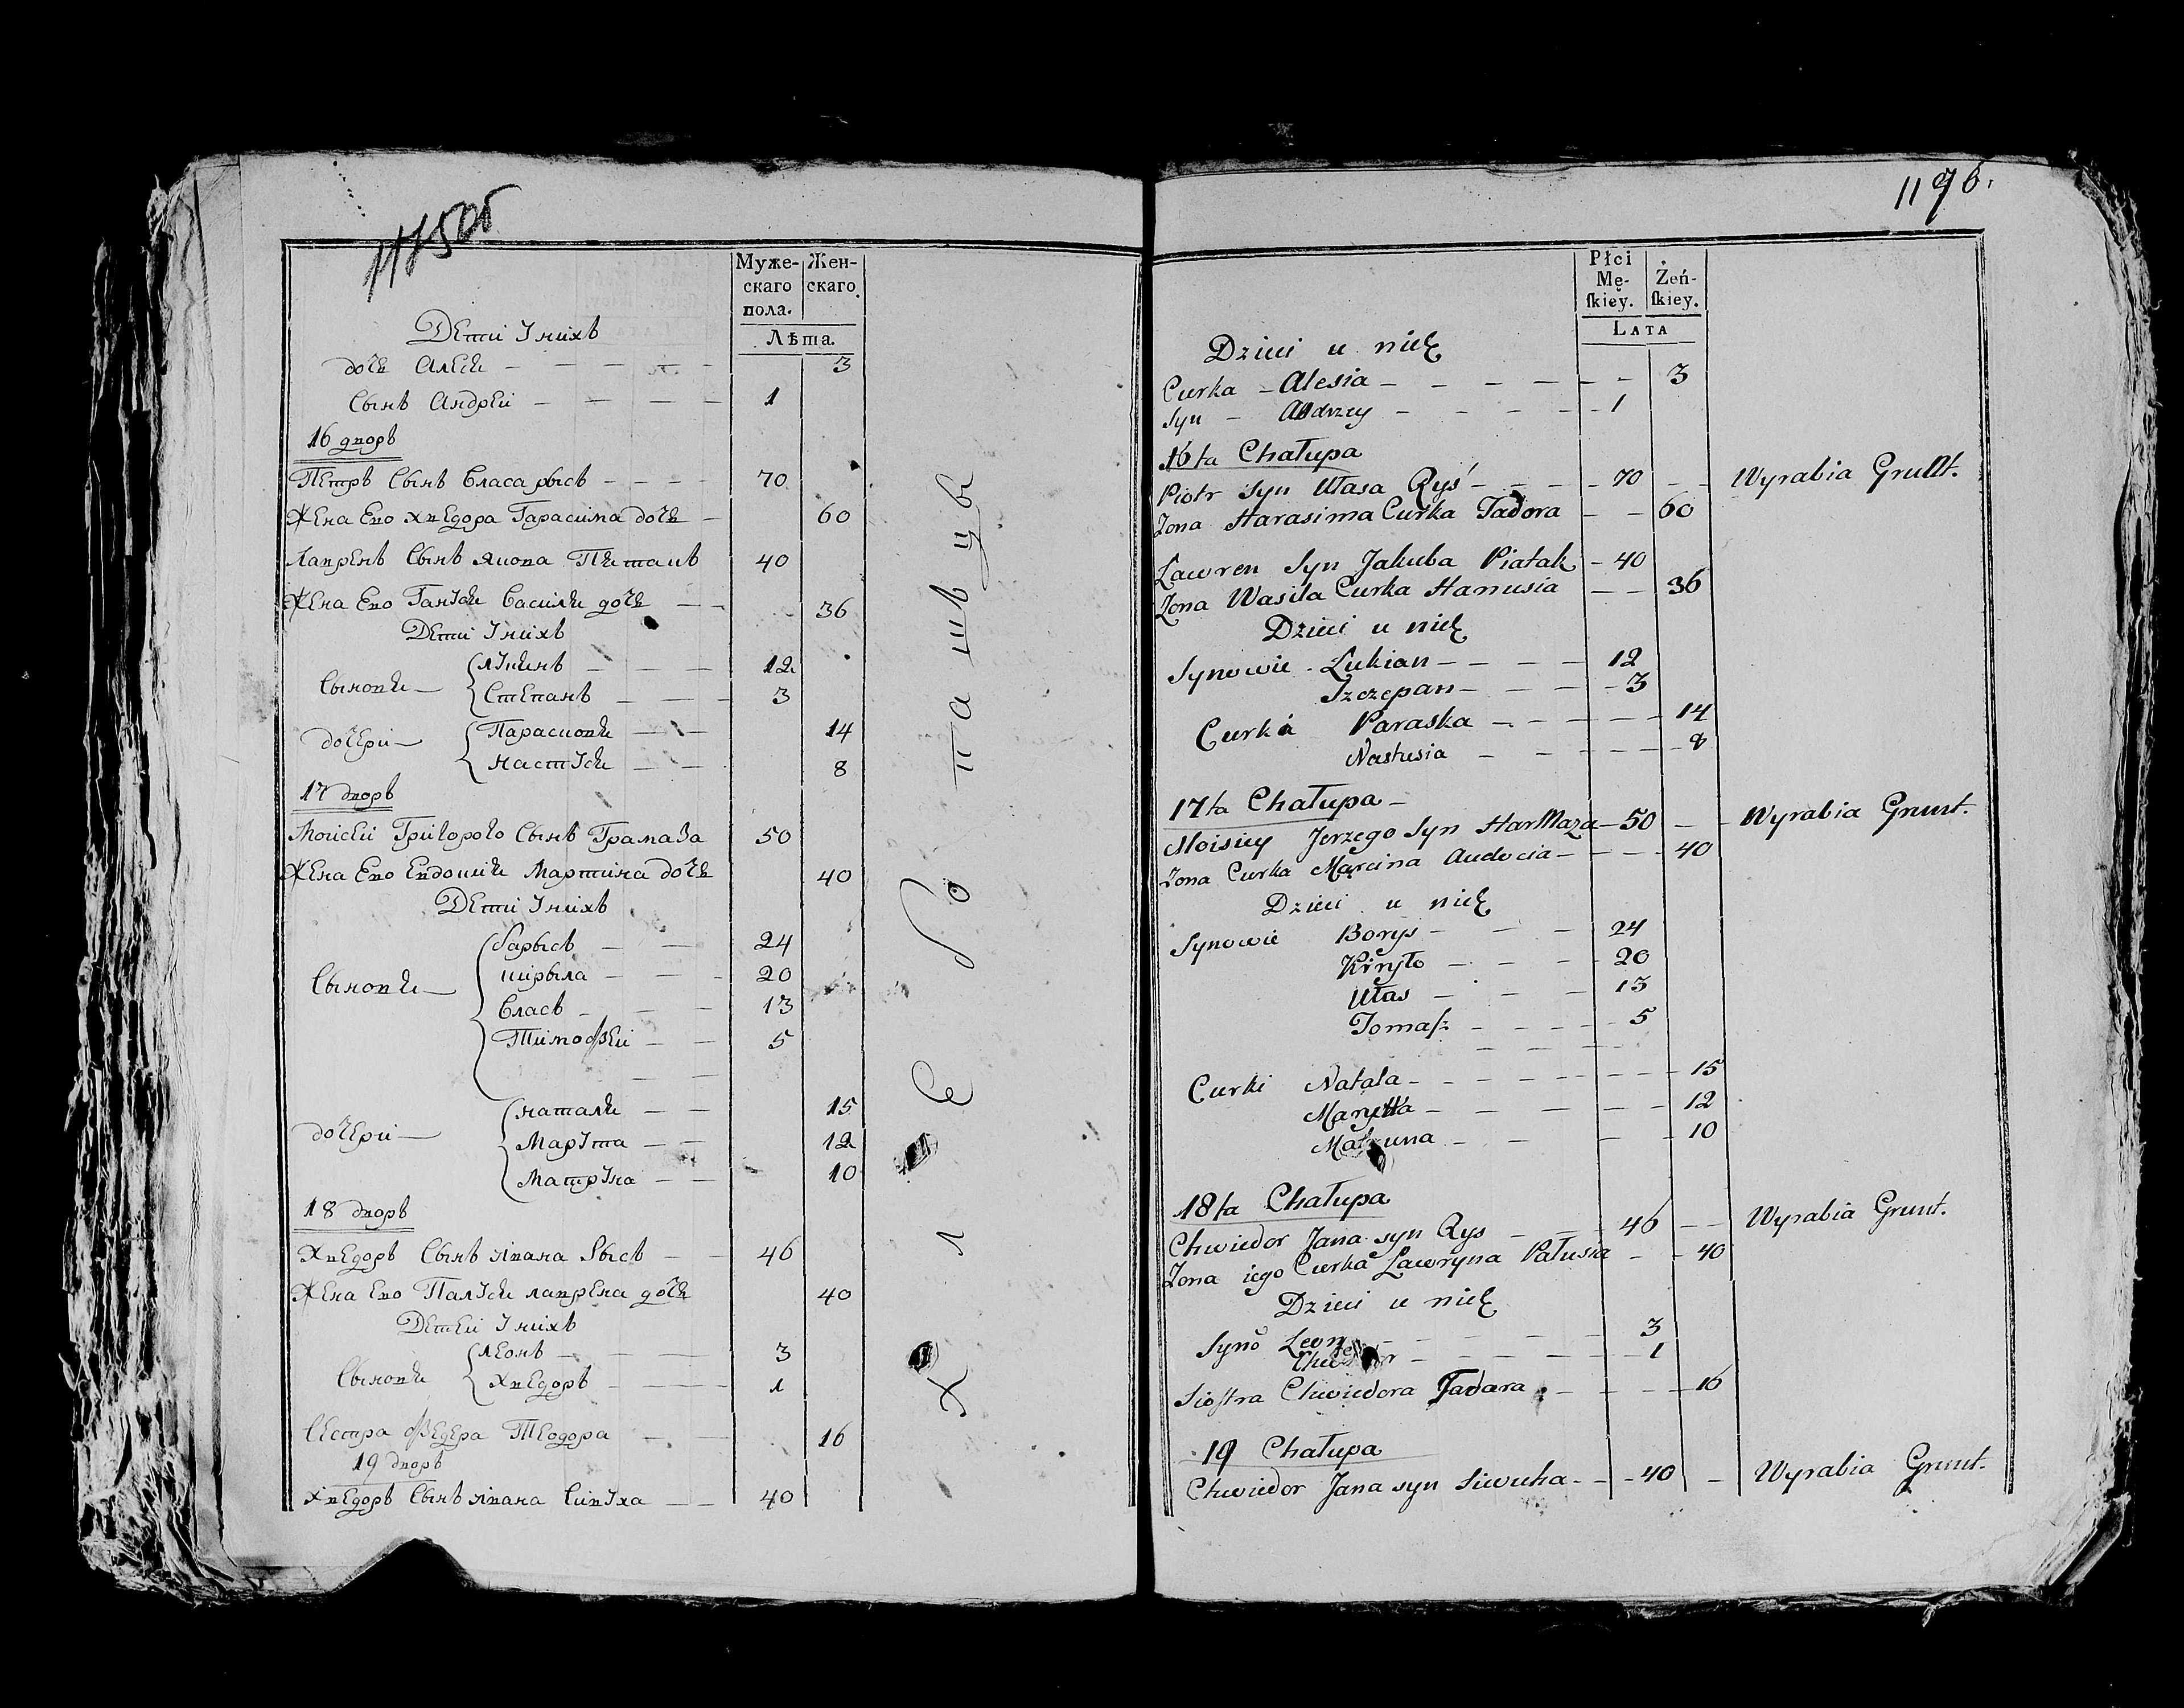 1175об
Муже-
скаго
пола.
Жен-
скаго
Лѣта.
Дети Iнихъ
дочь Алеся - 3
Сынъ Андрей - 1
16 дворъ
Петръ Сынъ Власа рысъ - 70
Жена Ево Хведора Гарасима дочь - 60
Лавренъ Сынъ Якова Пятакъ 40
Жена Ево Гануся Василя дочь - 36
Дети Iнихъ
Сыновя - Лукянъ - 12
Степанъ - 3
дочери - Парасковя - 14
Настуся - 8
17 дворъ
Моисей Григорого Сынъ Грамаза 50
Жена Ево Евдокия Мартина дочь 40
Дети Iнихъ
Сыновя - Барысъ - 24
Кирыла - 20
Власъ - 13
Тимофей - 5
дочери - Наталя - 15
Марута - 12
Матруна - 10
18 дворъ
Хведоръ Сынъ Iвана Рысъ - 46
Жена Ево Палуся лаврена дочь 40
Детей Iнихъ
Сыновя Леонъ - 3
Хведоръ - 1
Сестра Федера Теодора - 16
19 дворъ
Хведоръ Сынъ Iвана Сивуха - 40
Хле ро па шъ цы
1176.
Płci
Mę-
skiey.
Żeń-
skiey.
Lata
Dzieci u nich
Curka - Alesia - 3
Syn - Andrzey - 1
16ta Chałupa
Piotr Syn Ułasa Ryś - 70 - Wyrabia Grunt.
Żona Harasima Curka Tadora - 60
Lawren Syn Jakuba Piatak - 40
Żona Wasila Curka Hanusia - 36
Dzieci u nich
Synowie - Łukian - 12
Szczepan - 3
Curka Paraska - 14
Nastusia - 8
17ta Chałupa -
Moisiey Jerzego Syn Harmaza - 50 - Wyrabia Grunt.
Żona Curka Marcina Audocia - 40
Dzieci u nich
Synowie Borys - 24
Kiryło - 20
Ułas - 13
Tomasz - 5
Curki Natala - 15
Maryna - 12
10
18ta Chałupa
Chwiedor Jana syn Rys - 46 - Wyrabia Grunt.
Żona iego Curka Ławryna Pałusia - 40
Dzieci u nich
Syno Leon - 3
Chwiedor - 1
Siostra Chwiedora Tadara - 16
19 Chałupa
Chwiedor Jana syn Siwuha - 40 - Wyrabia Grunt.